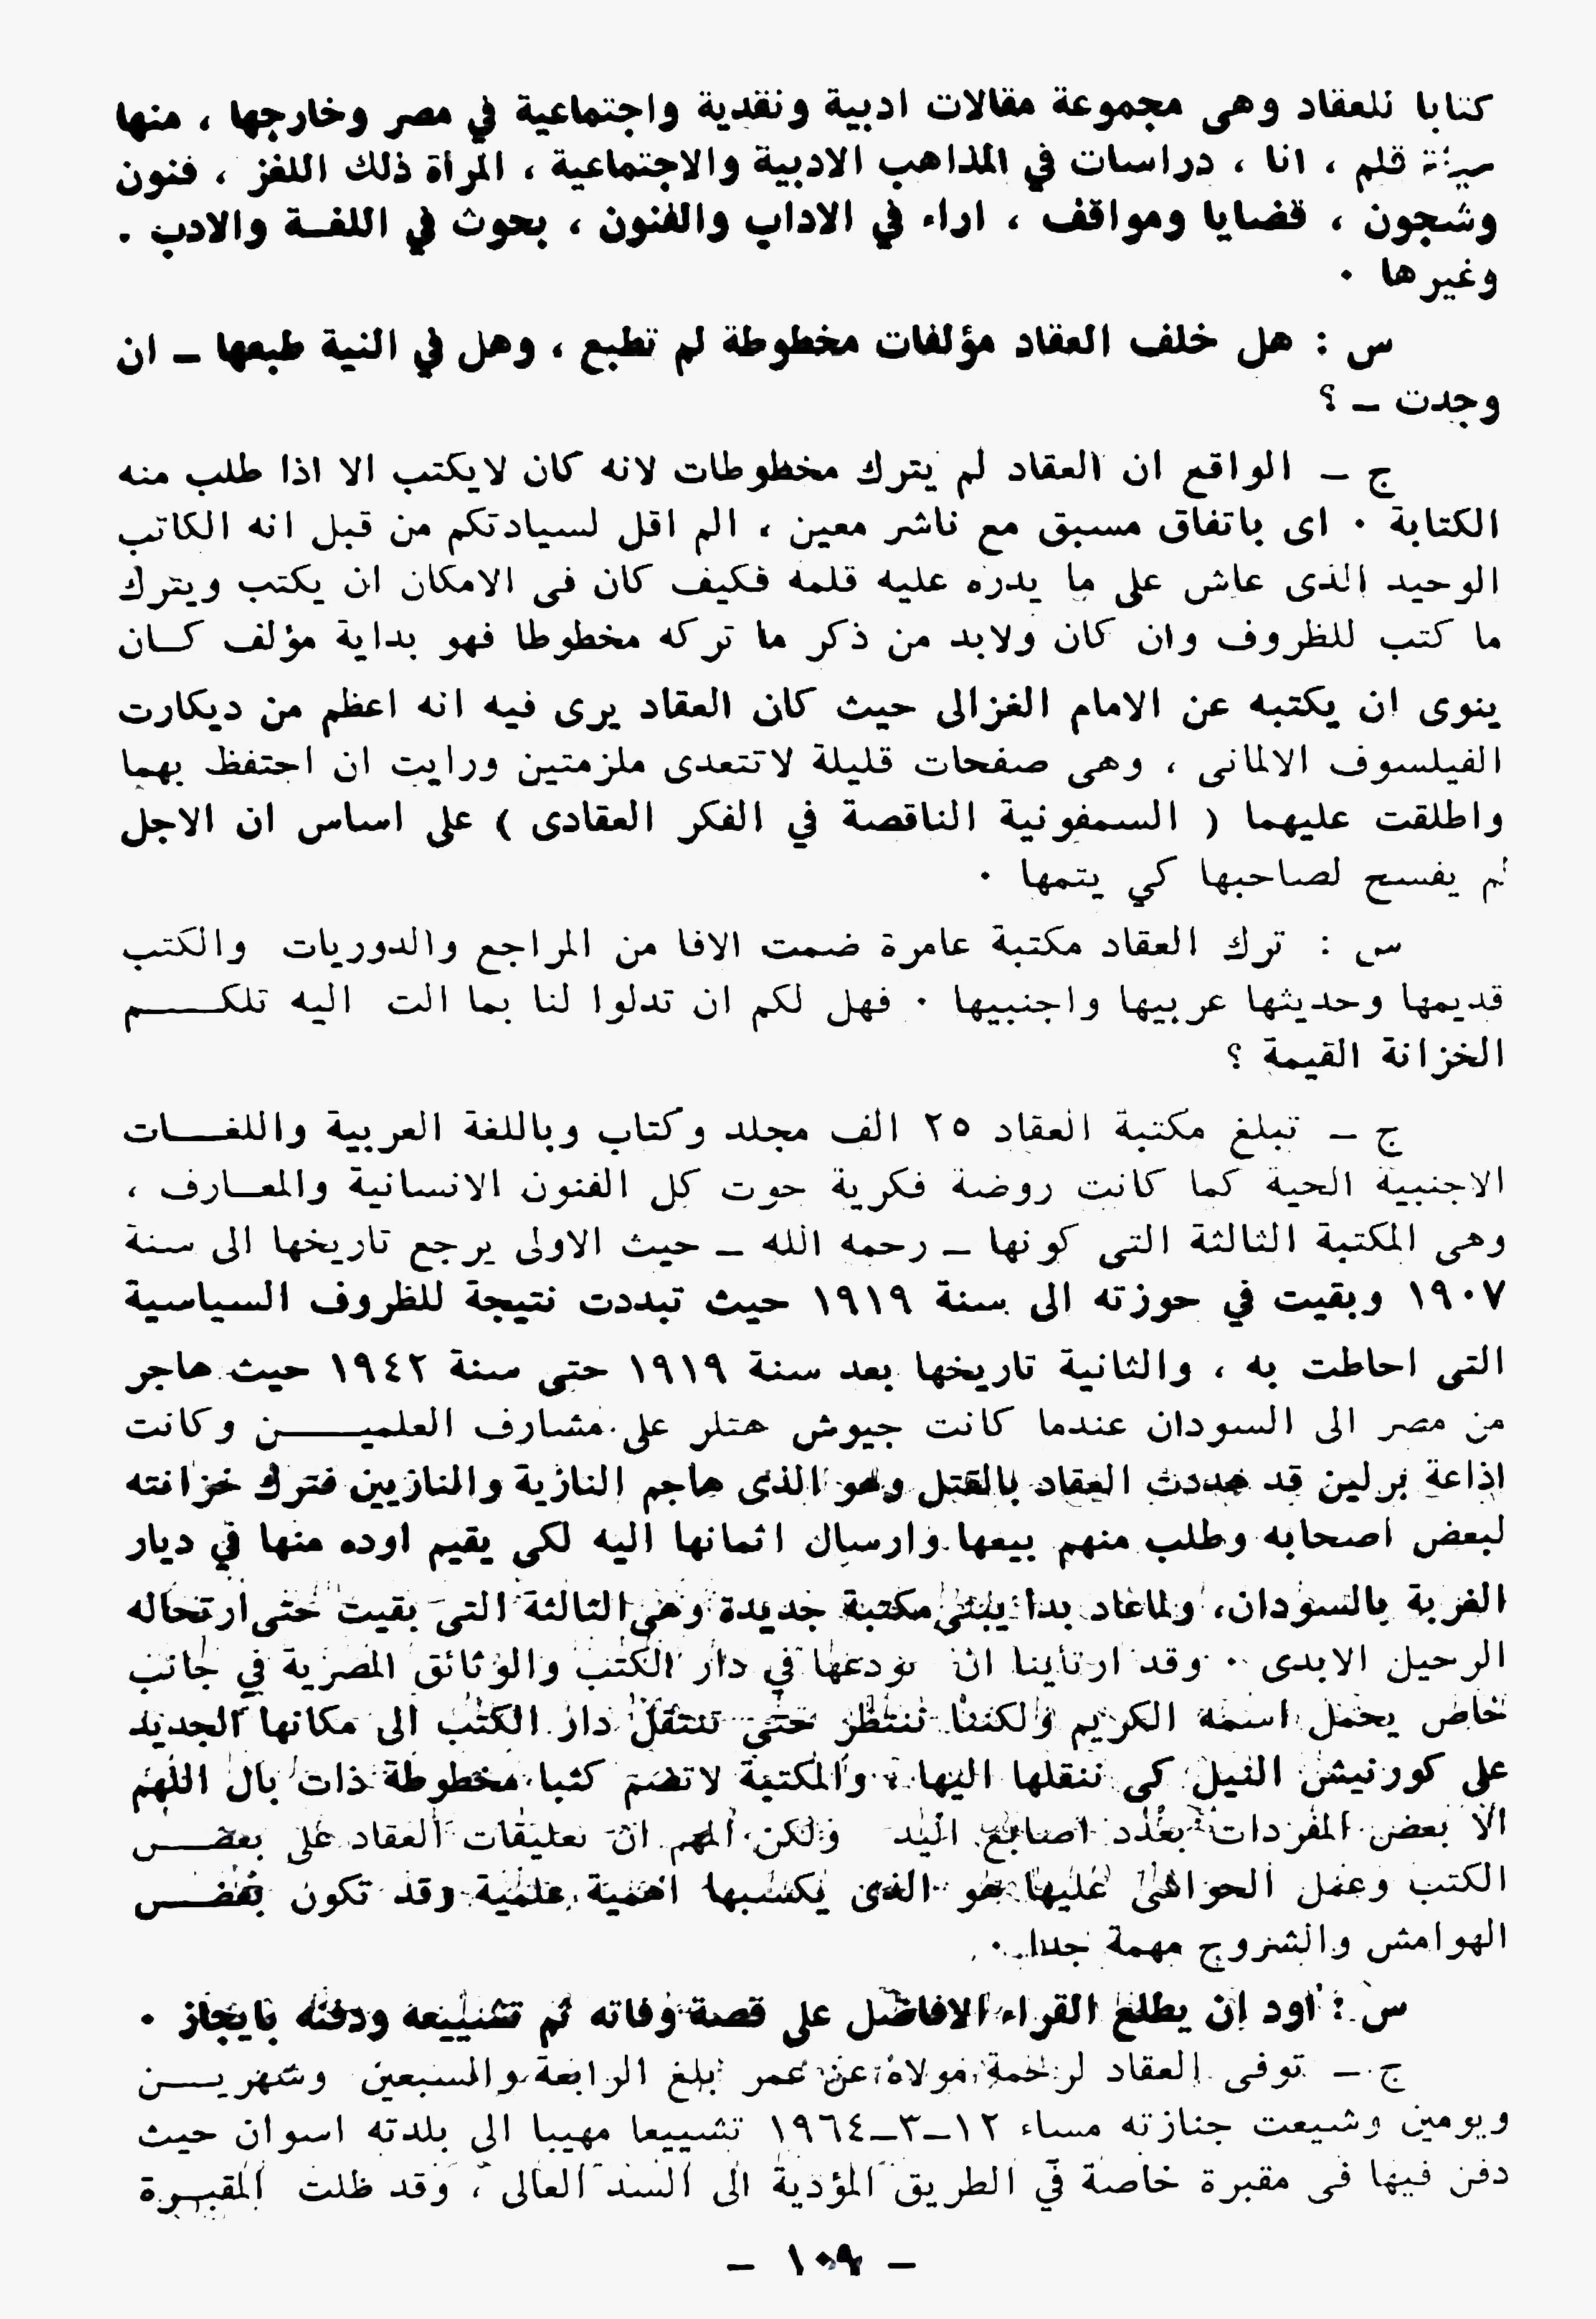 كتابا للعقاد وهى مجموعة مقالات ادبية ونقدية واجتماعية في مصر وخارجها ، منها
حياة قلم ، انا ، دراسات في المذاهب الادبية والاجتماعية ، المرأة ذلك اللغز ، فنون
وشجون ، قضايا ومواقف ، اراء في الاداب والفنون ، بحوث في اللغـة والادب .
وغيرها ٠
س : هل خلف العقاد مؤلفات مخطوطة لم تطبع ، وهل في النية طبعها ــ ان
وجدت ــ ؟
ج ــ الواقع ان العقاد لم يترك مخطوطات لانه كان لايكتب الا اذا طلب منه
الكتابة ٠ اى باتفاق مسبق مع ناشر معين ، الم اقل لسيادتكم من قبل انه الكاتب
الوحيد الذى عاش على ما يدره عليه قلمه فكيف كان فى الامكان ان يكتب ويترك
ما كتب للظروف وان كان ولابد من ذكر ما تركه مخطوطا فهو بداية مؤلف كـان
ينوى ان يكتبه عن الامام الغزالى حيث كان العقاد يرى فيه انه اعظم من ديكارت
الفيلسوف الالمانى ، وهى صفحات قليلة لاتتعدى ملزمتين ورايت ان احتفظ بهما
واطلقت عليهما ( السمفونية الناقصة في الفكر العقادى ) على اساس ان الاجل
لم يفسح لصاحبها كي يتمها ٠
س : ترك العقاد مكتبة عامرة ضمت الافا من المراجع والدوريات والكتب
قديمها وحديثها عربيها واجنبيها ٠ فهل لكم ان تدلوا لنا بما الت اليه تلكـــم
الخزانة القيمة ؟
ج ــ تبلغ مكتبة العقاد ٢٥ الف مجلد وكتاب وباللغة العربية واللغـــات
الاجنبية الحية كما كانت روضة فكرية حوت كل الفنون الانسانية والمعـارف ،
وهى المكتبة الثالثة التى كونها ــ رحمه الله ــ حيث الاولى يرجع تاريخها الى سنة
١٩٠٧ وبقيت في حوزته الى سنة ١٩١٩ حيث تبددت نتيجة للظروف السياسية
التى احاطت به ، والثانية تاريخها بعد سنة ١٩١٩ حتى سنة ١٩٤٢ حيث هاجر
من مصر الى السودان عندما كانت جيوش هتلر على مشارف العلميـــن وكانت
اذاعة برلين قد هددت العقاد بالقتل وهو الذى هاجم النازية والنازيين فترك خزانته
لبعض اصحابه وطلب منهم بيعها وارسال اثمانها اليه لكى يقيم اوده منها في ديار
الغربة بالسودان، ولماعاد بدا يبنى مكتبة جديدة وهى الثالثة التى بقيت حتى ارتحاله
الرحيل الابدى ٠ وقد ارتأينا ان نودعها في دار الكتب والوثائق المصرية في جانب
خاص يحمل اسمه الكريم ولكننا ننتظر حتى تنتقل دار الكتب الى مكانها الجديد
على كورنيش النيل كى ننقلها اليها ، والمكتبة لاتضم كتبا مخطوطة ذات بال اللهم
الا بعض المفردات بعدد اصابع اليد ولكن المهم ان تعليقات العقاد على بعـض
الكتب وعمل الحواشى عليها هو الذى يكسبها اهمية علمية وقد تكون بعـض
الهوامش والشروح مهمة جدا ٠
س : اود ان يطلع القراء الافاضل على قصة وفاته ثم تشييعه ودفنه بايجاز ٠
ج ــ توفى العقاد لرحمة مولاه عن عمر بلغ الرابعة والسبعين وشهريـــن
ويومين وشيعت جنازته مساء ١٢ــ٣ــ١٩٦٤ تشييعا مهيبا الى بلدته اسوان حيث
دفن فيها فى مقبرة خاصة في الطريق المؤدية الى السد العالى ، وقد ظلت المقبـرة
ــ ١٠٩ ــ